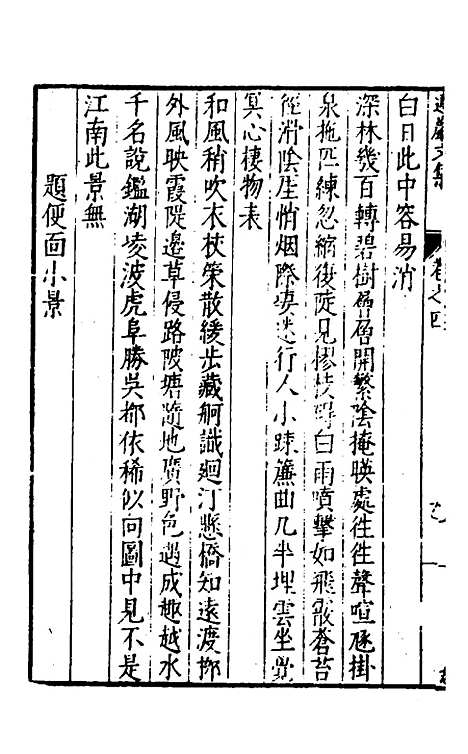 遵巖文集
卷之四
白日此中容易消
深林幾百轉碧樹層層開繁陰掩暎處往往聲喧豗掛
泉拖匹練忽縮復陡見樛枝碍白雨噴擊如飛霰蒼苔
徑滑陰生悄烟際妻迷行人小疎簾曲几半埋雲坐覺
冥心棲物表
和風稍吹木杖策散緩步藏舸識迴汀懸橋知遠渡柳
外風映霞隄邊草侵路陂塘隨地廣野色遇成趣越水
千名說鑑湖堎波虎阜勝吳都依稀似向圖中見不是
江南此景無
題便面小景